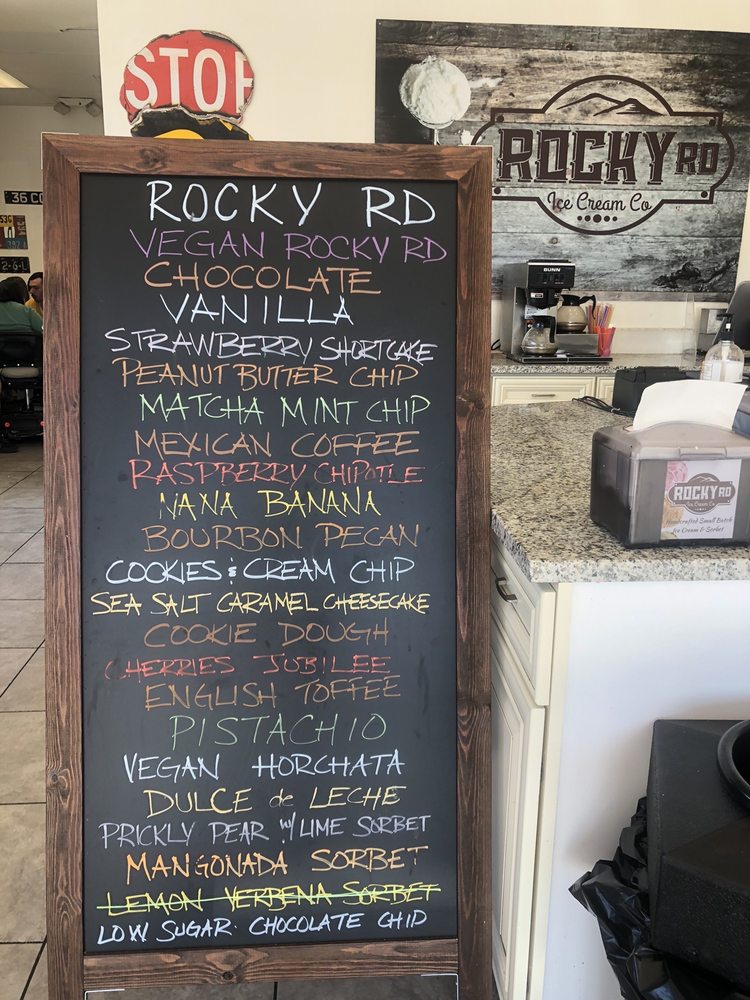 STOP
ROCKY RD
Ice Cream Co
36 CO
53G
392 1
2-6-L
BUNN
ROCKY RD
VEGAN ROCKY RD
CHOCOLATE
VANILLA
STRAWBERRY SHORTCAKE
PEANUT BUTTER CHIP
MATCHA MINT CHIP
MEXICAN COFFEE
RASPBERRY CHIPOTLE
NANA BANANA
BOURBON PECAN
COOKIES & CREAM CHIP
SEA SALT CARAMEL CHEESECAKE
COOKIE DOUGH
CHERRIES JUBILEE
ENGLISH TOFFEE
PISTACHIO
VEGAN HORCHATA
DULCE de LECHE
PRICKLY PEAR w/ LIME SORBET
MANGONADA SORBET
LEMON VERBENA SORBET
LOW SUGAR: CHOCOLATE CHIP
ROCKY RD
Ice Cream Co
Handcrafted Small Batch
Ice Cream & Sorbet